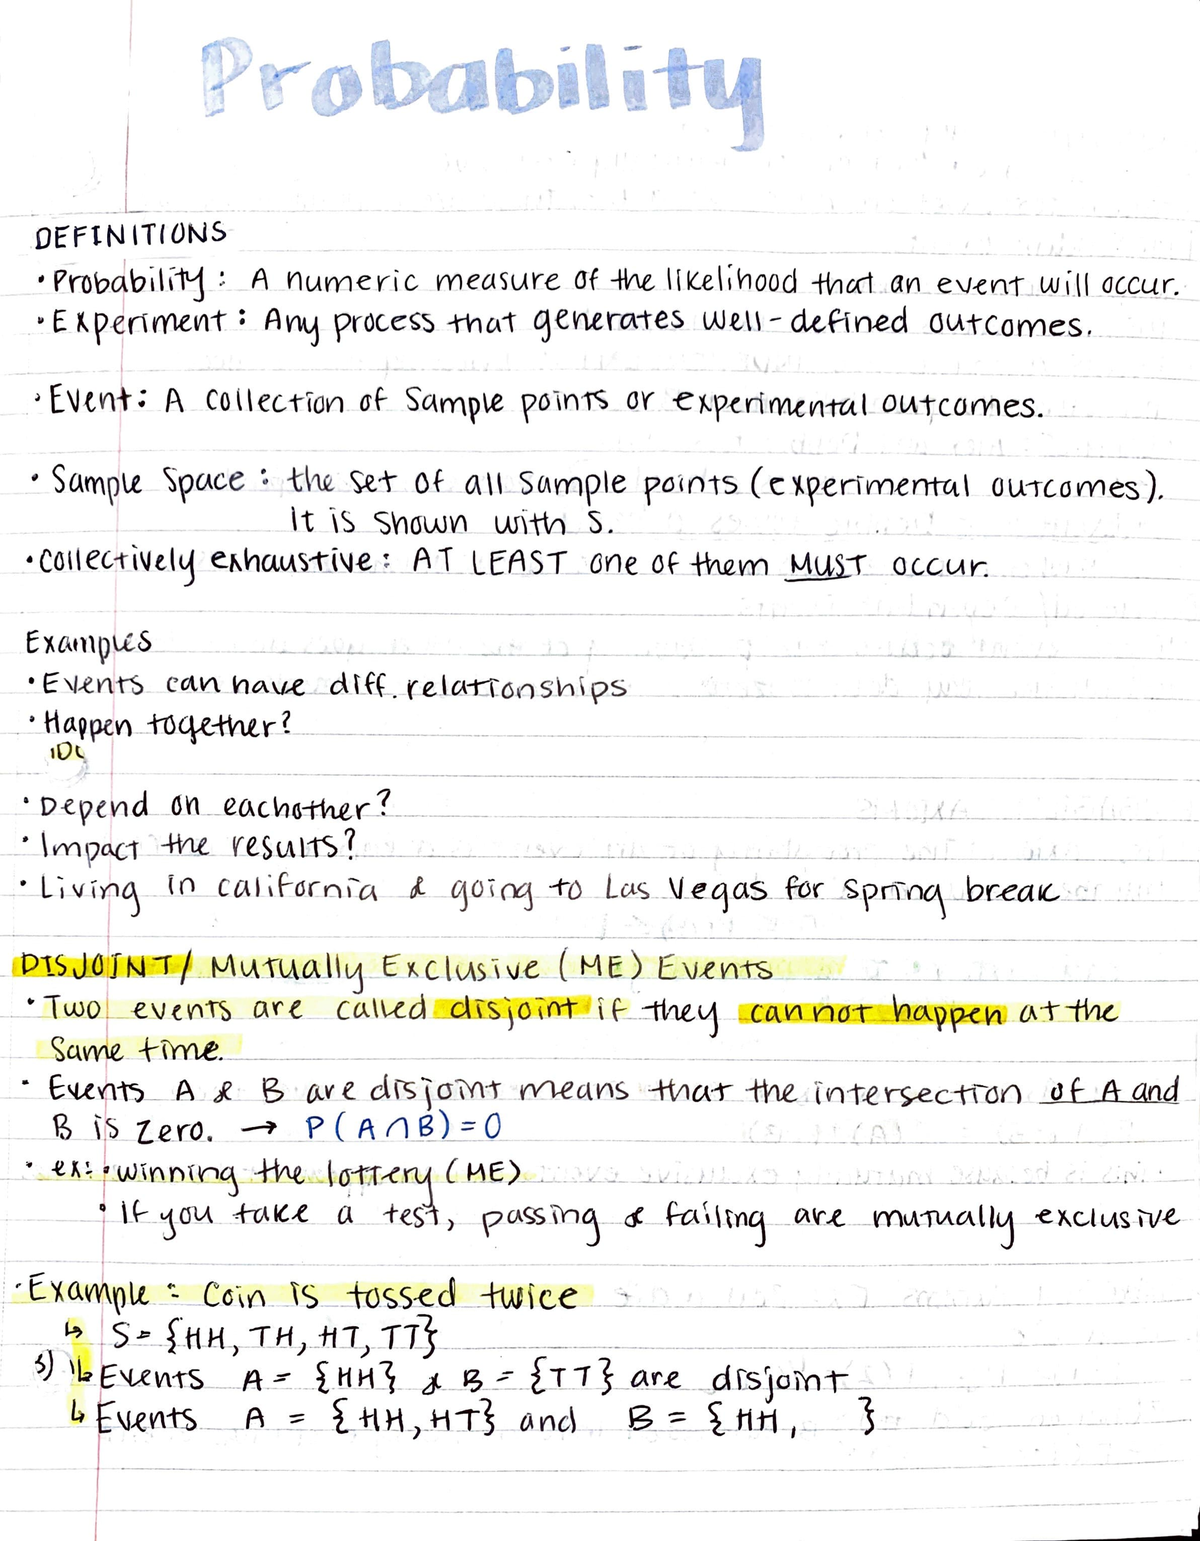 Probability
DEFINITIONS
• Probability: A numeric measure of the likelihood that an event will occur.
• Experiment: Any process that generates well-defined outcomes.
• Event: A collection of Sample points or experimental outcomes.
• Sample Space: the set of all Sample points (experimental outcomes).
It is shown with S.
• Collectively exhaustive: AT LEAST one of them MUST occur.
Examples
• Events can have diff. relationships
• Happen together?
• Depend on eachother?
• Impact the results?
• Living in california & going to Las Vegas for spring break
DISJOINT/ Mutually Exclusive (ME) Events
• Two events are called disjoint if they cannot happen at the
Same time.
• Events A & B are disjoint means that the intersection of A and
B is zero. → P(A∩B)=0
• ex: • winning the lottery (ME)
• If you take a test, passing & failing are mutually exclusive
• Example: Coin is tossed twice
↳ S = {HH, TH, HT, TT}
↳ Events A = {HH} & B = {TT} are disjoint
↳ Events A = {HH, HT} and B = {HH, }